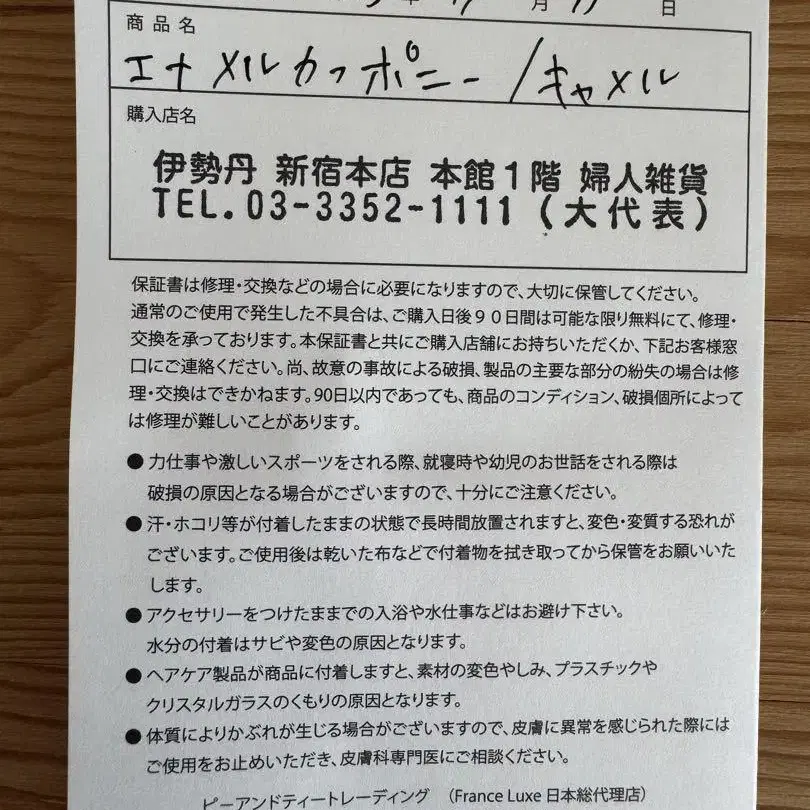 月 日
商品名
エナメルカフポニー/キャメル
購入店名
伊勢丹 新宿本店 本館1階 婦人雑貨
TEL.03-3352-1111 (大代表)
保証書は修理・交換などの場合に必要になりますので、大切に保管してください。
通常のご使用で発生した不具合は、ご購入日後90日間は可能な限り無料にて、修理・
交換を承っております。本保証書と共にご購入店舗にお持ちいただくか、下記お客様窓
口にご連絡ください。尚、故意の事故による破損、製品の主要な部分の紛失の場合は修
理・交換はできかねます。90日以内であっても、商品のコンディション、破損個所によって
は修理が難しいことがあります。
● 力仕事や激しいスポーツをされる際、就寝時や幼児のお世話をされる際は
破損の原因となる場合がございますので、十分にご注意ください。
● 汗・ホコリ等が付着したままの状態で長時間放置されますと、変色・変質する恐れが
ございます。ご使用後は乾いた布などで付着物を拭き取ってから保管をお願いいた
します。
● アクセサリーをつけたままでの入浴や水仕事などはお避け下さい。
水分の付着はサビや変色の原因となります。
● ヘアケア製品が商品に付着しますと、素材の変色やしみ、プラスチックや
クリスタルガラスのくもりの原因となります。
● 体質によりかぶれが生じる場合がございますので、皮膚に異常を感じられた際には
ご使用をお止めいただき、皮膚科専門医にご相談ください。
ピーアンドティートレーディング (France Luxe 日本総代理店)